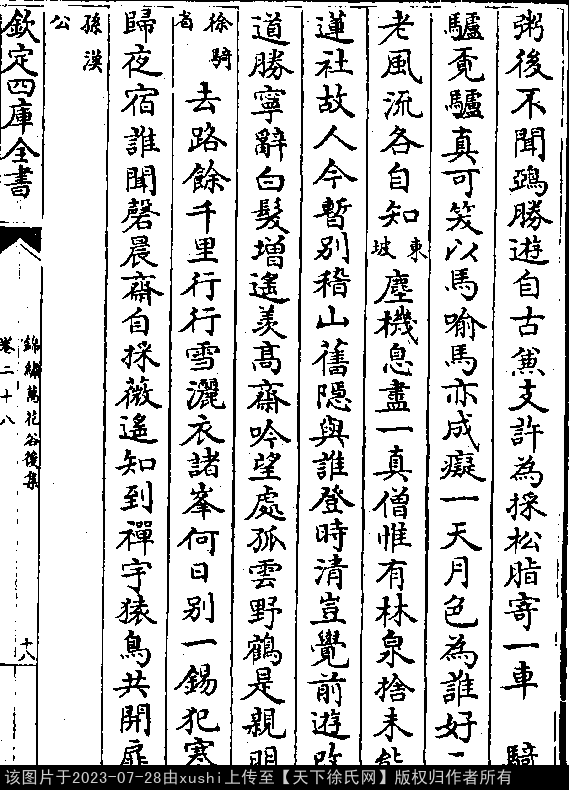 粥後不聞鵶勝遊自古兼支許為採松脂寄一車 騎
驢覓驢真可笑以馬喻馬亦成癡一天月色為誰好二
老風流各自知東坡塵機息盡一真僧惟有林泉捨未能
蓮社故人今暫别稽山舊隠與誰登時清豈覺前遊改
道勝寧辭白髮增遙羡髙齋吟望處孤雲野鶴是親朋
徐騎省 去路餘千里行行雪灑衣諸峯何日别一錫犯寒
歸夜宿誰聞磬晨齋自採薇遙知到禪宇猿鳥共開扉
孫漢公
欽定四庫全書
錦繡萬花谷後集
卷二十八
十八
该图片于2023-07-28由xushi上传至【天下徐氏网】版权归作者所有